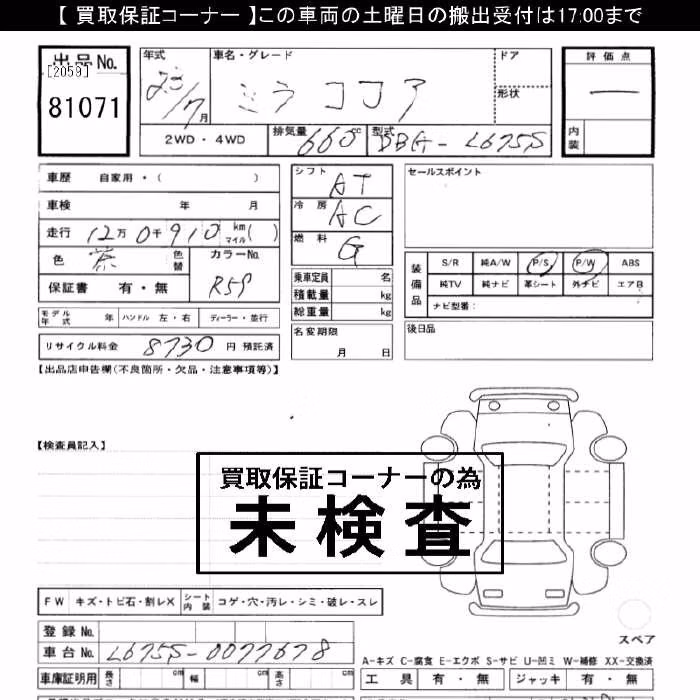 【 買取保証コーナー 】この車両の土曜日の搬出受付は17:00まで
出品No.
[2059]
81071
年式 車名・グレード ドア 評価点
23/7月 ミラ ココア 形状 ―
2WD・4WD 排気量 660cc 型式 DBA-L675S 内装
車歴 自家用・( ) シフト AT セールスポイント
車検 年 月 冷房 AC
走行 12万0千910 km マイル( ) 燃料 G
色 茶 色替 カラーNo. R59
保証書 有・無
乗車定員 名
積載量 kg
総重量 kg
装備品 S/R 純A/W P/S P/W ABS
純TV 純ナビ 革シート 外ナビ エアB
ナビ型番:
モデル年式 年 ハンドル 左・右 ディーラー・並行 名変期限 月 日 後日品
リサイクル料金 8730 円 預託済
【出品店申告欄(不良箇所・欠品・注意事項等)】
【検査員記入】
買取保証コーナーの為
未検査
FW キズ・トビ石・割レX シート内装 コゲ・穴・汚レ・シミ・破レ・スレ
登録No.
車台No. L675S-0077678
スペア
A-キズ C-腐食 E-エクボ S-サビ U-凹ミ W-補修 XX-交換済
車庫証明用 長さ 幅 高さ 工具 有・無 ジャッキ 有・無